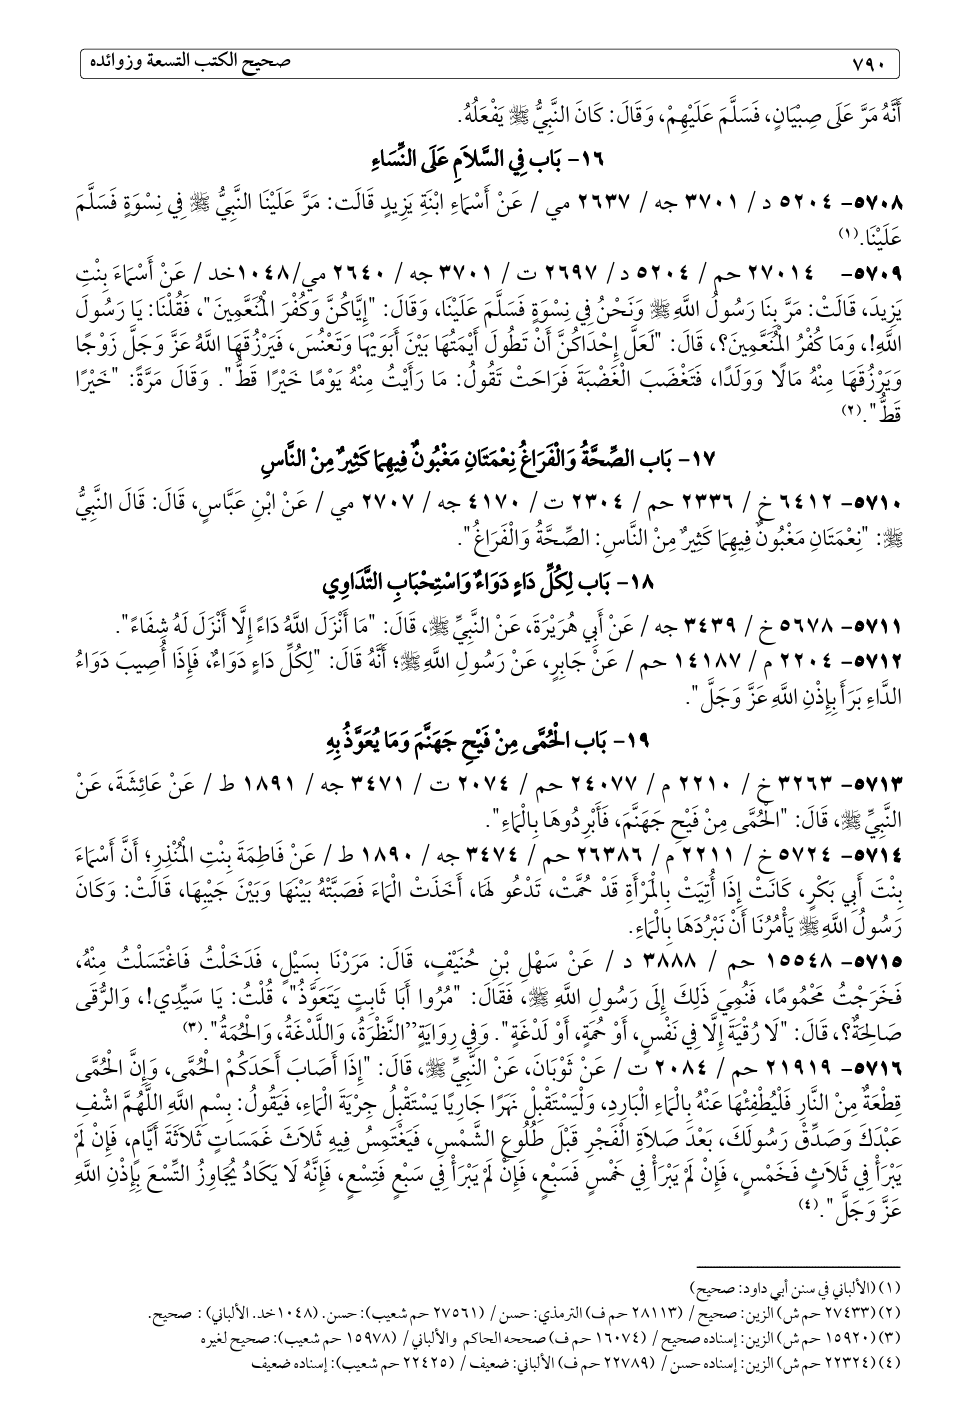 ٧٩٠ صحيح الكتب التسعة وزوائده
أَنَّهُ مَرَّ عَلَى صِبْيَانٍ، فَسَلَّمَ عَلَيْهِمْ، وَقَالَ: كَانَ النَّبِيُّ ﷺ يَفْعَلُهُ.
١٦- بَاب فِي السَّلاَمِ عَلَى النِّسَاءِ
٥٧٠٨- ٥٢٠٤ د/ ٣٧٠١ جه / ٢٦٣٧ مي / عَنْ أَسْمَاءِ ابْنَةِ يَزِيدٍ قَالَت: مَرَّ عَلَيْنَا النَّبِيُّ ﷺ فِي نِسْوَةٍ فَسَلَّمَ
عَلَيْنَا.(١)
٥٧٠٩- ٢٧٠١٤ حم / ٥٢٠٤ د/ ٢٦٩٧ ت / ٣٧٠١ جه / ٢٦٤٠ مي/١٠٤٨خد / عَنْ أَسْمَاءَ بِنْتِ
يَزِيدَ، قَالَتْ: مَرَّ بِنَا رَسُولُ اللَّهِ ﷺ وَنَحْنُ فِي نِسْوَةٍ فَسَلَّمَ عَلَيْنَا، وَقَالَ: "إِيَّاكُنَّ وَكُفْرَ الْمُنَعَّمِينَ"، فَقُلْنَا: يَا رَسُولَ
اللَّهِ!، وَمَا كُفْرُ الْمُنَعَّمِينَ؟، قَالَ: "لَعَلَّ إِحْدَاكُنَّ أَنْ تَطُولَ أَيْمَتُهَا بَيْنَ أَبَوَيْهَا وَتَعْنُسَ، فَيَرْزُقَهَا اللَّهُ عَزَّ وَجَلَّ زَوْجًا
وَيَرْزُقَهَا مِنْهُ مَالًا وَوَلَدًا، فَتَغْضَبَ الْغَضْبَةَ فَرَاحَتْ تَقُولُ: مَا رَأَيْتُ مِنْهُ يَوْمًا خَيْرًا قَطُّ". وَقَالَ مَرَّةً: "خَيْرًا
قَطُّ".(٢)
١٧- بَاب الصِّحَّةُ وَالْفَرَاغُ نِعْمَتَانِ مَغْبُونٌ فِيهِمَا كَثِيرٌ مِنْ النَّاسِ
٥٧١٠- ٦٤١٢ خ / ٢٣٣٦ حم / ٢٣٠٤ ت / ٤١٧٠ جه / ٢٧٠٧ مي / عَنْ ابْنِ عَبَّاسٍ، قَالَ: قَالَ النَّبِيُّ
ﷺ: "نِعْمَتَانِ مَغْبُونٌ فِيهِمَا كَثِيرٌ مِنْ النَّاسِ: الصِّحَّةُ وَالْفَرَاغُ".
١٨- بَاب لِكُلِّ دَاءٍ دَوَاءٌ وَاسْتِحْبَابِ التَّدَاوِي
٥٧١١- ٥٦٧٨ خ / ٣٤٣٩ جه / عَنْ أَبِي هُرَيْرَةَ، عَنْ النَّبِيِّ ﷺ، قَالَ: "مَا أَنْزَلَ اللَّهُ دَاءً إِلَّا أَنْزَلَ لَهُ شِفَاءً".
٥٧١٢- ٢٢٠٤ م/ ١٤١٨٧ حم / عَنْ جَابِرٍ، عَنْ رَسُولِ اللَّهِ ﷺ؛ أَنَّهُ قَالَ: "لِكُلِّ دَاءٍ دَوَاءٌ، فَإِذَا أُصِيبَ دَوَاءُ
الدَّاءِ بَرَأَ بِإِذْنِ اللَّهِ عَزَّ وَجَلَّ".
١٩- بَاب الْحُمَّى مِنْ فَيْحِ جَهَنَّمَ وَمَا يُعَوَّذُ بِهِ
٥٧١٣- ٣٢٦٣ خ / ٢٢١٠ م / ٢٤٠٧٧ حم / ٢٠٧٤ ت / ٣٤٧١ جه / ١٨٩١ ط / عَنْ عَائِشَةَ، عَنْ
النَّبِيِّ ﷺ، قَالَ: "الْحُمَّى مِنْ فَيْحِ جَهَنَّمَ، فَأَبْرِدُوهَا بِالْمَاءِ".
٥٧١٤- ٥٧٢٤ خ / ٢٢١١ م/ ٢٦٣٨٦ حم / ٣٤٧٤ جه / ١٨٩٠ ط / عَنْ فَاطِمَةَ بِنْتِ الْمُنْذِرِ؛ أَنَّ أَسْمَاءَ
بِنْتَ أَبِي بَكْرٍ، كَانَتْ إِذَا أُتِيَتْ بِالْمَرْأَةِ قَدْ حُمَّتْ، تَدْعُو لَهَا، أَخَذَتْ الْمَاءَ فَصَبَّتْهُ بَيْنَهَا وَبَيْنَ جَيْبِهَا، قَالَتْ: وَكَانَ
رَسُولُ اللَّهِ ﷺ يَأْمُرُنَا أَنْ نَبْرُدَهَا بِالْمَاءِ.
٥٧١٥- ١٥٥٤٨ حم / ٣٨٨٨ د / عَنْ سَهْلِ بْنِ حُنَيْفٍ، قَالَ: مَرَرْنَا بِسَيْلٍ، فَدَخَلْتُ فَاغْتَسَلْتُ مِنْهُ،
فَخَرَجْتُ مَحْمُومًا، فَنُمِيَ ذَلِكَ إِلَى رَسُولِ اللَّهِ ﷺ، فَقَالَ: "مُرُوا أَبَا ثَابِتٍ يَتَعَوَّذُ"، قُلْتُ: يَا سَيِّدِي!، وَالرُّقَى
صَالِحَةٌ؟، قَالَ: "لَا رُقْيَةَ إِلَّا فِي نَفْسٍ، أَوْ حُمَةٍ، أَوْ لَدْغَةٍ". وَفِي رِوَايَةٍ”النَّظْرَةُ، وَاللَّدْغَةُ، وَالْحُمَةُ".(٣)
٥٧١٦- ٢١٩١٩ حم / ٢٠٨٤ ت / عَنْ ثَوْبَانَ، عَنْ النَّبِيِّ ﷺ، قَالَ: "إِذَا أَصَابَ أَحَدَكُمْ الْحُمَّى، وَإِنَّ الْحُمَّى
قِطْعَةٌ مِنْ النَّارِ فَلْيُطْفِئْهَا عَنْهُ بِالْمَاءِ الْبَارِدِ، وَلْيَسْتَقْبِلْ نَهَرًا جَارِيًا يَسْتَقْبِلُ جِرْيَةَ الْمَاءِ، فَيَقُولُ: بِسْمِ اللَّهِ اللَّهُمَّ اشْفِ
عَبْدَكَ وَصَدِّقْ رَسُولَكَ، بَعْدَ صَلاَةِ الْفَجْرِ قَبْلَ طُلُوعِ الشَّمْسِ، فَيَغْتَمِسُ فِيهِ ثَلاَثَ غَمَسَاتٍ ثَلاَثَةَ أَيَّامٍ، فَإِنْ لَمْ
يَبْرَأْ فِي ثَلاَثٍ فَخَمْسٍ، فَإِنْ لَمْ يَبْرَأْ فِي خَمْسٍ فَسَبْعٍ، فَإِنْ لَمْ يَبْرَأْ فِي سَبْعٍ فَتِسْعٍ، فَإِنَّهُ لَا يَكَادُ يُجَاوِزُ التِّسْعَ بِإِذْنِ اللَّهِ
عَزَّ وَجَلَّ".(٤)
(١) (الألباني في سنن أبي داود: صحيح)
(٢) (٢٧٤٣٣ حم ش) الزين: صحيح / (٢٨١١٣ حم ف) الترمذي: حسن / (٢٧٥٦١ حم شعيب): حسن. (١٠٤٨خد. الألباني) : صحيح.
(٣) (١٥٩٢٠ حم ش) الزين: إسناده صحيح / (١٦٠٧٤ حم ف) صححه الحاكم والألباني/ (١٥٩٧٨ حم شعيب): صحيح لغيره
(٤) (٢٢٣٢٤ حم ش) الزين: إسناده حسن / (٢٢٧٨٩ حم ف) الألباني: ضعيف / (٢٢٤٢٥ حم شعيب): إسناده ضعيف